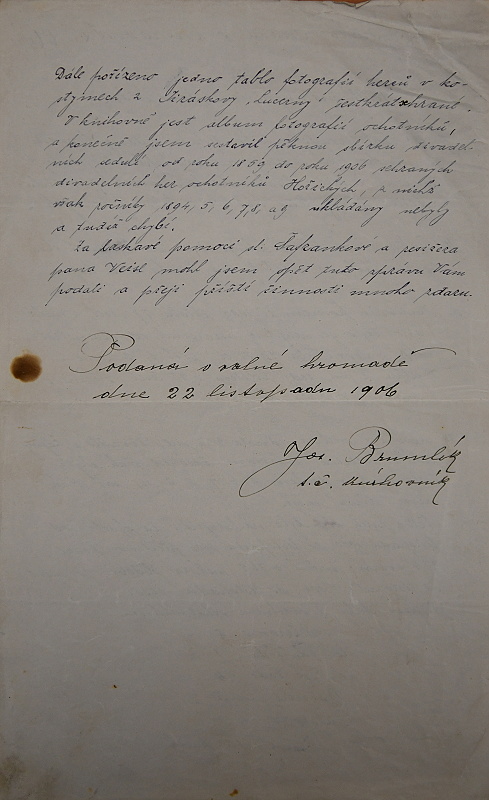 Dále pořízeno jedno tablo fotografií herců v ko-
stymech z Jiráskovy „Lucerny" jestkrát hrané.
V knihovně jest album fotografií ochotníků,
a konečně jsem sestavil pěknou sbírku divadel-
ních cedulí od roku 1859 do roku 1906 sehraných
divadelních her ochotníků Hořických, z nichž
však ročníky 1894, 5, 6, 7, 8, a 9 ukládány nebyly
a tudíž chybí.
Za laskavé pomoci sl. Šafránkové a režiséra
pana Veisl mohl jsem opět tuto zprávu Vám
podati a přeji příští činnosti mnoho zdaru.
Podaná v valné hromadě
dne 22 listopadu 1906
Jos. Brumlík
t.č. knihovník